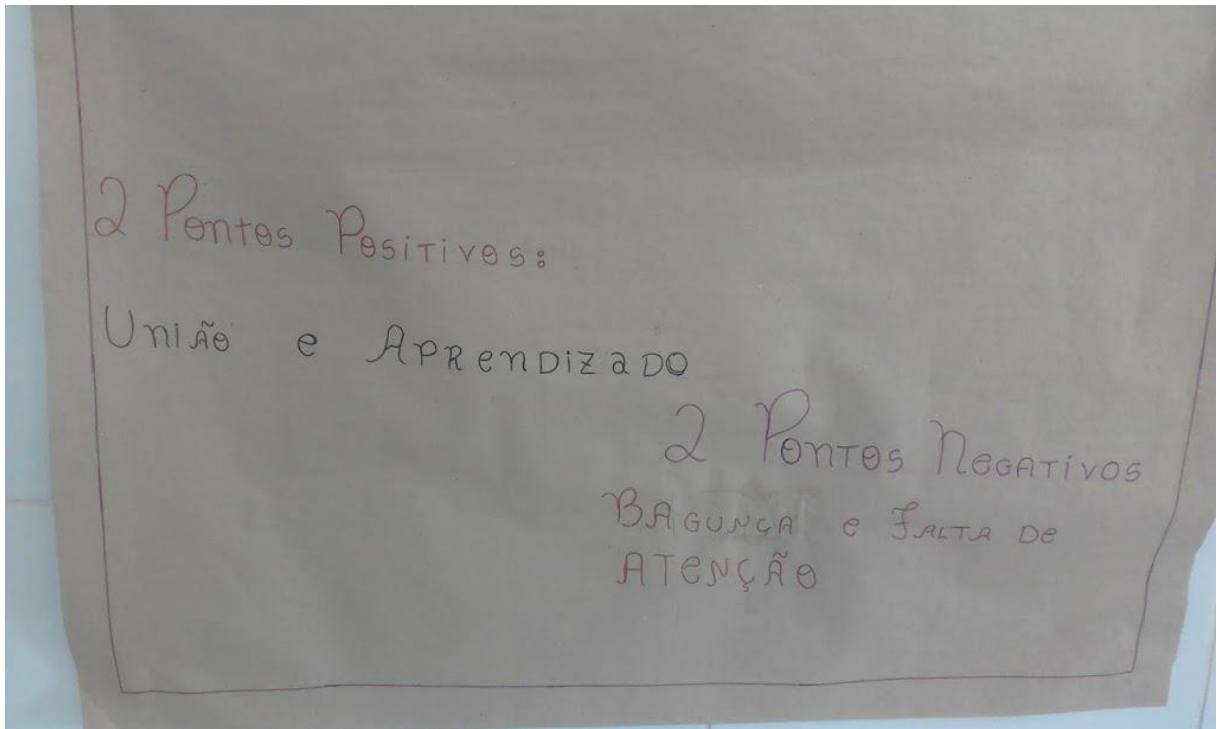 2 Pontos Positivos:
União e Aprendizado
2 Pontos Negativos
Bagunça e Falta de
Atenção